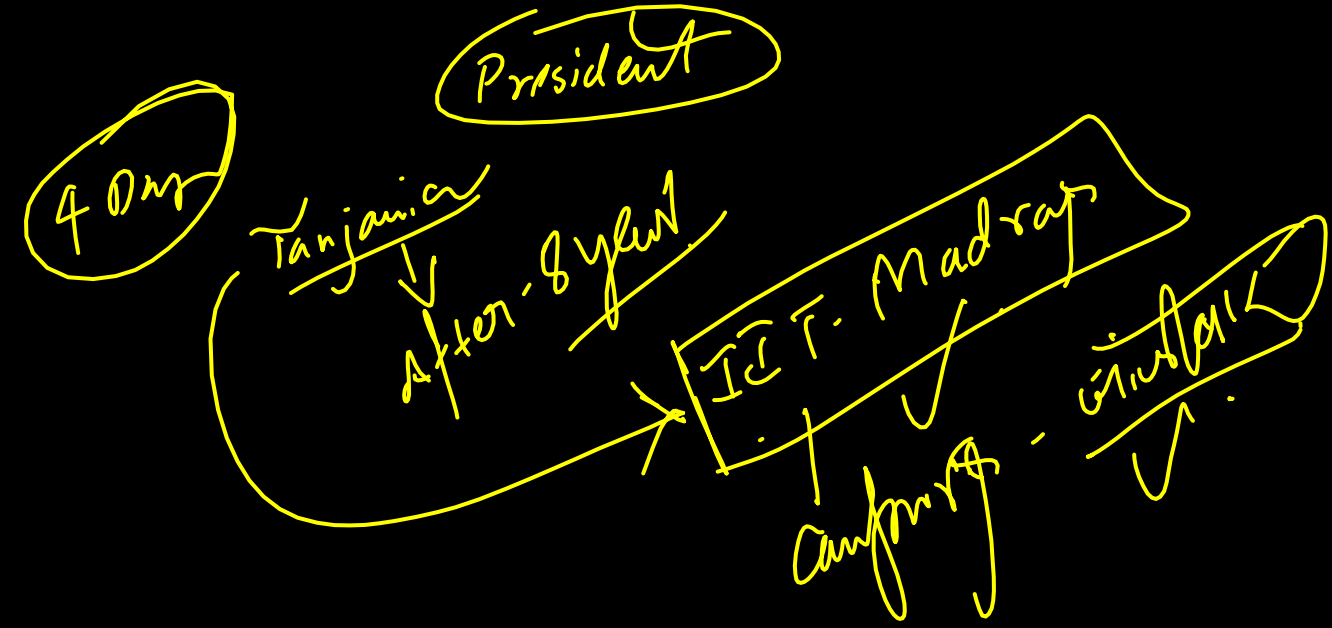 President
4 Day
Tanjania
After - 8 year
IIT. Madras